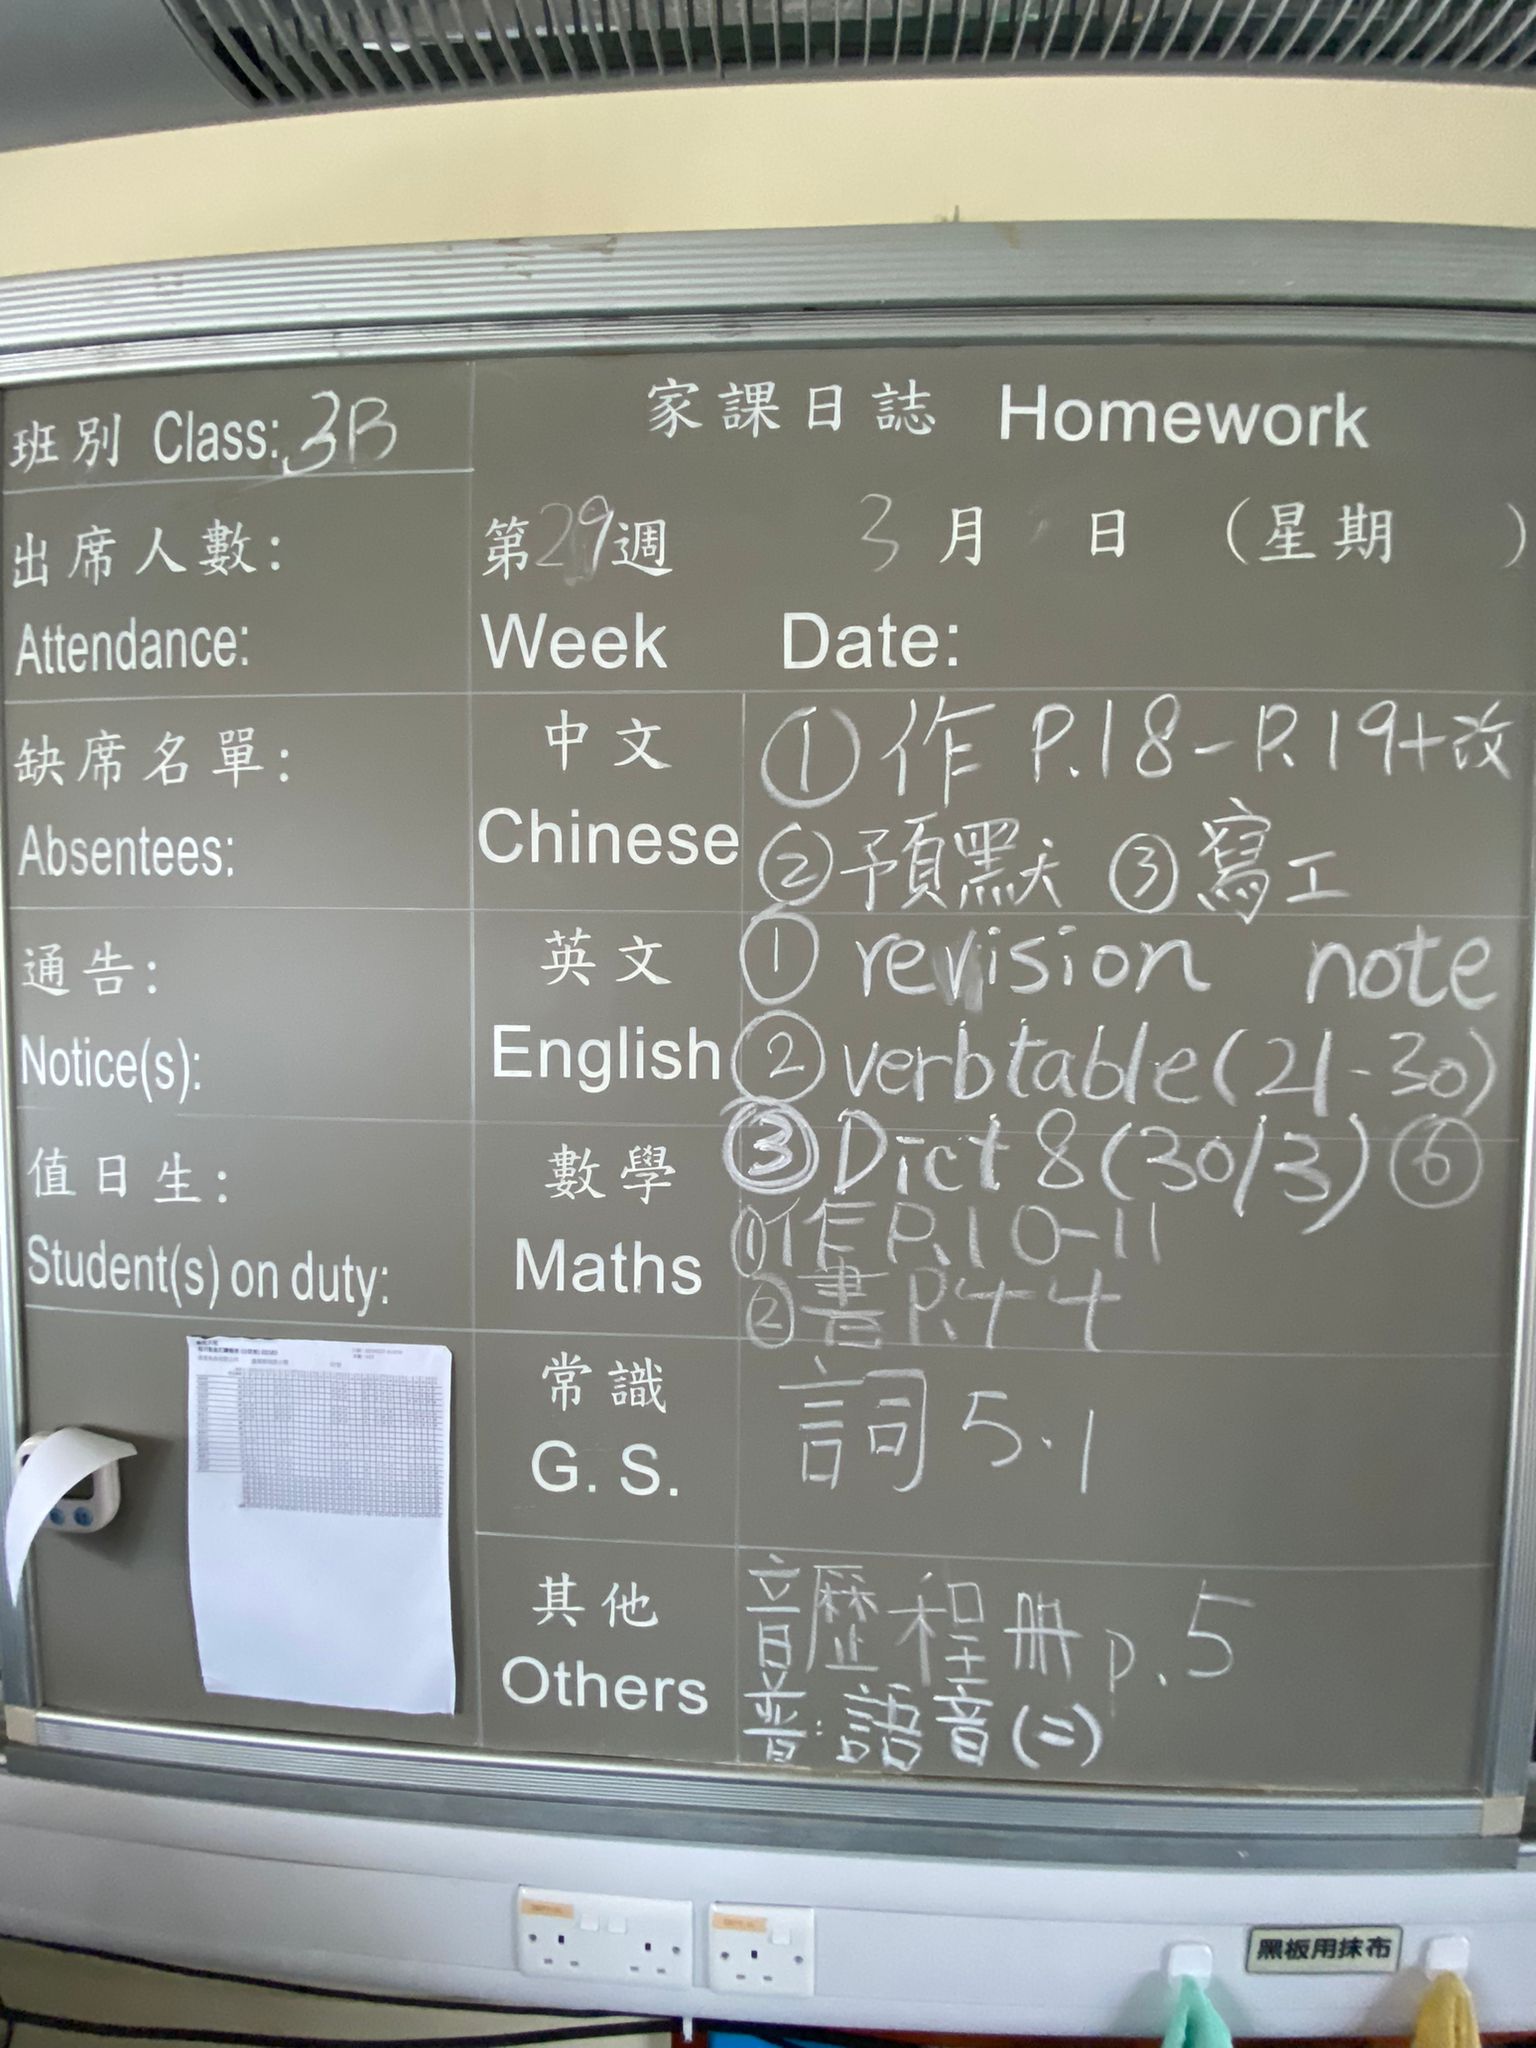 班別 Class: 3B
家課日誌 Homework
出席人數:
Attendance:
第29週 3月 日 (星期 )
Week Date:
缺席名單:
Absentees:
中文
Chinese
①作 P.18-P.19+改
②預默 ③寫工
通告:
Notice(s):
英文
English
① revision note
② verb table (21-30)
③ Dict 8 (30/3) ⑥
值日生:
Student(s) on duty:
數學
Maths
①作P.10-11
②書P.44
常識
G. S.
詞 5.1
其他
Others
音歷程冊 p.5
普:語音(二)
黑板用抹布